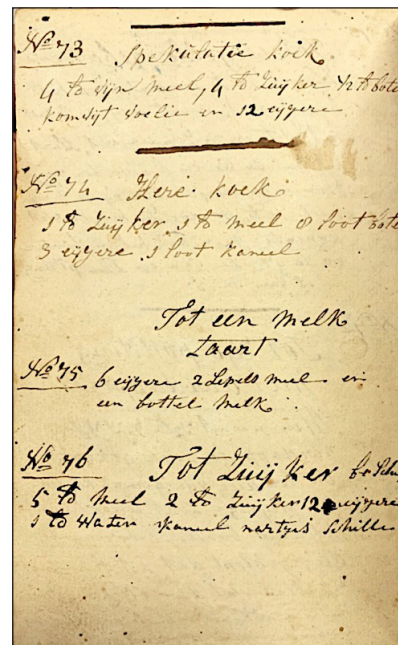 No 73 Spekulatie koek
4 ℔ fijn meel, 4 ℔ Zuijker 1/2 ℔ bote
komijt foelie en 12 eijgere
No 74 Here koek
1 ℔ Zuijker 1 ℔ meel 8 loot bote
3 eijgere 1 loot kaneel
Tot een Melk
taart
No 75 6 eijgere 2 Lepels meel en
een bottel Melk
No 76 Tot Zuijker
5 ℔ meel 2 ℔ Zuijker 12 eijgere
1 ℔ Water kaneel Schille